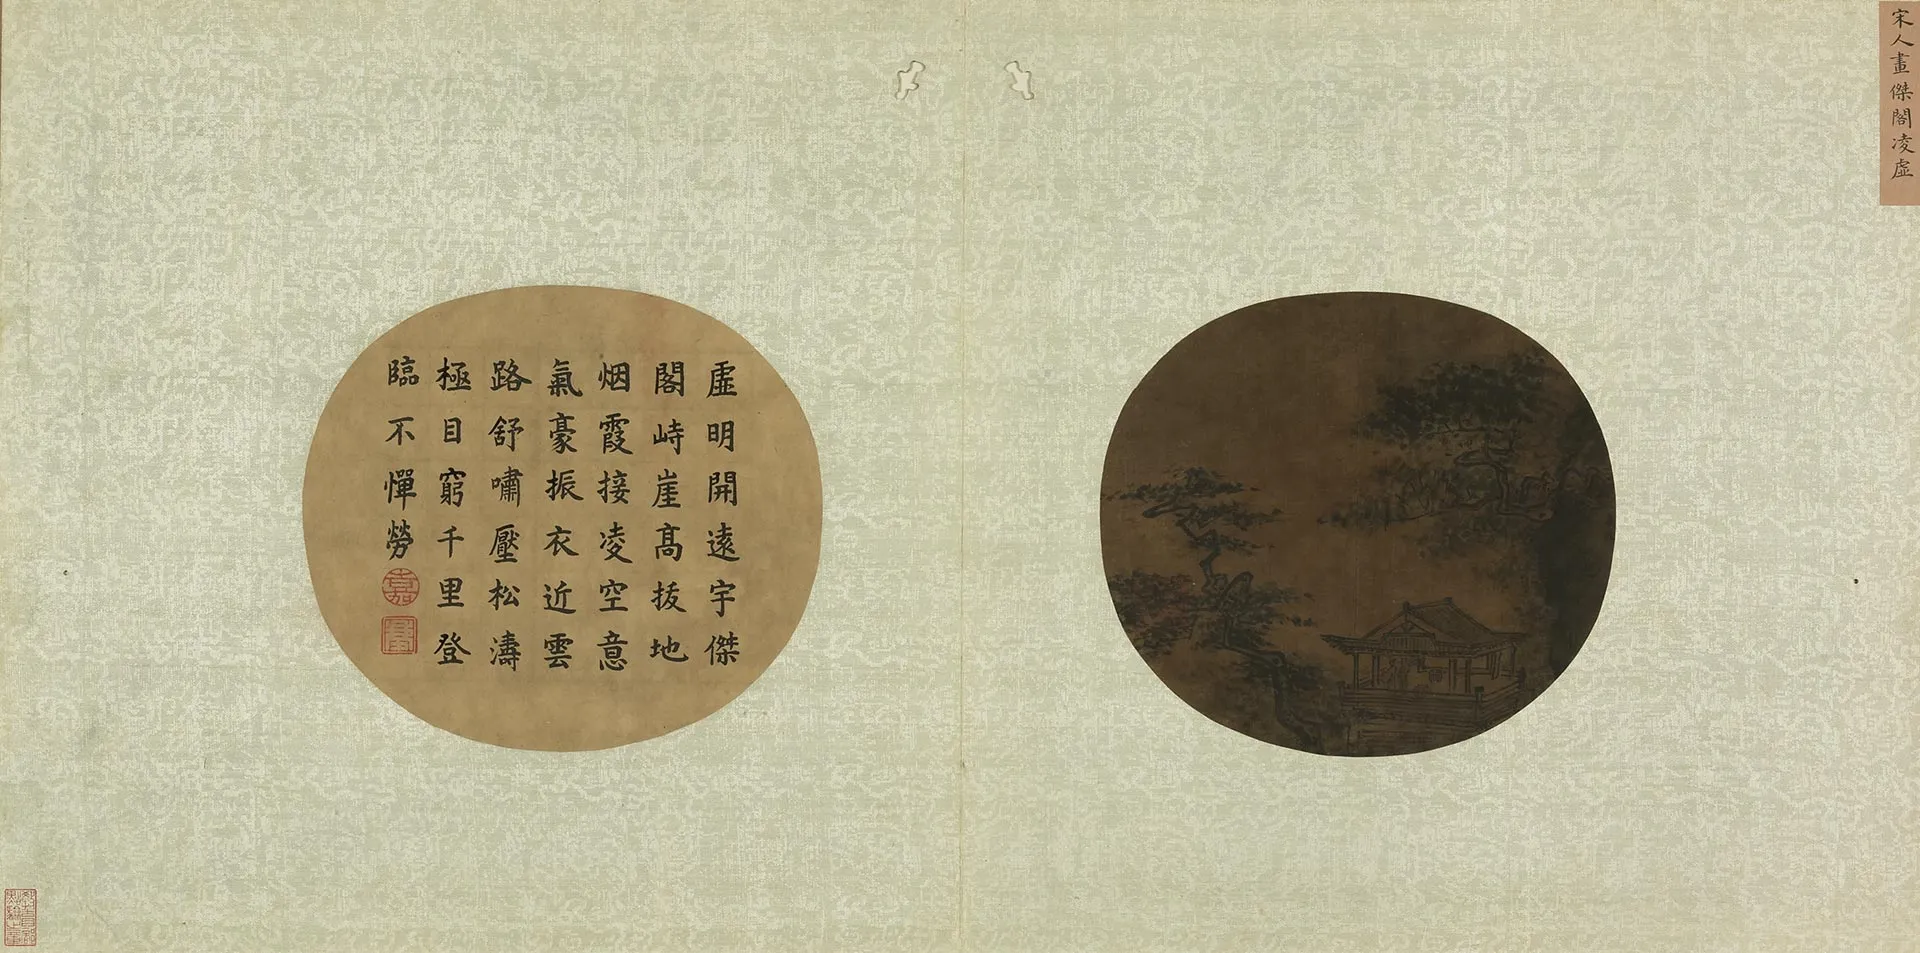 宋人畫傑閣凌虛
虛明開遠宇傑
閣峙崖高拔地
烟霞接凌空意
氣豪振衣近雲
路舒嘯壓松濤
極目窮千里登
臨不憚勞
嘉